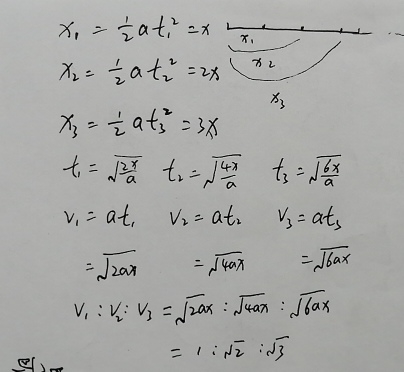 x₁ = ½at₁² = x
x₁
x₂ = ½at₂² = 2x
x₂
x₃
x₃ = ½at₃² = 3x
t₁ = √(2x/a) t₂ = √(4x/a) t₃ = √(6x/a)
v₁ = at₁ v₂ = at₂ v₃ = at₃
= √2ax = √4ax = √6ax
v₁ : v₂ : v₃ = √2ax : √4ax : √6ax
= 1 : √2 : √3